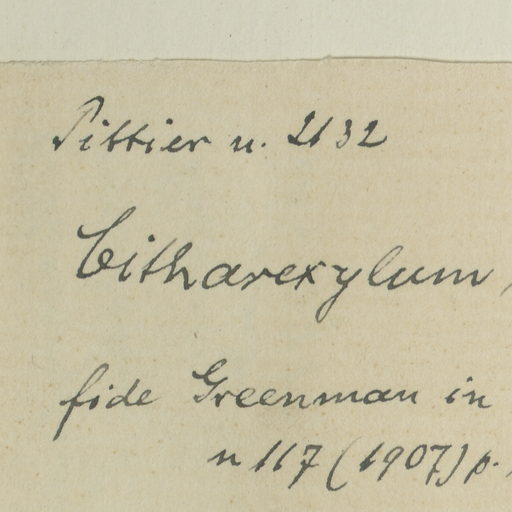 Pittier n. 2132
Citharexylum
fide Greenman in
n 117 (1907) p.